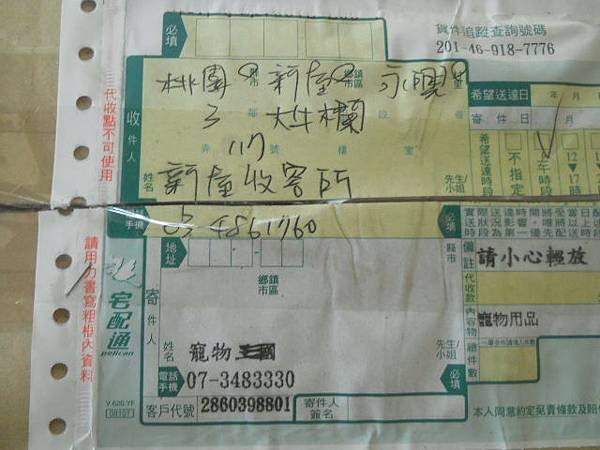 貨件追蹤查詢號碼
201-46-918-7776
必填
桃園 縣市 新屋 鄉鎮市區 永興 里
3 鄰 大牛欄 段
117 號 樓 室
收件人
姓名
新屋收容所
先生/小姐
手機
03 4861760
代收點不可使用
請用力書寫粗框內資料
希望送達日 年 月
寄件日 年 月
希望送達時段
不指定
上午時段
12-17時
地址
鄉鎮市區
縣市
宅配通
pelican
V 626.YF
08101
寄件人
姓名
寵物王國
先生/小姐
電話
手機
07-3483330
必填
客戶代號
2860398801
寄件人簽名
備註
請小心輕放
代收款
內容物
寵物用品
總件數
本人同意約定至貴條款及賠